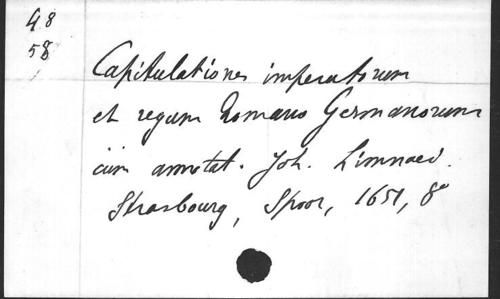 48
58
Capitulationes imperatorum
et regum Romano Germanorum
cum annotat. Joh. Limnaei.
Strasbourg, Spoor, 1651, 8°